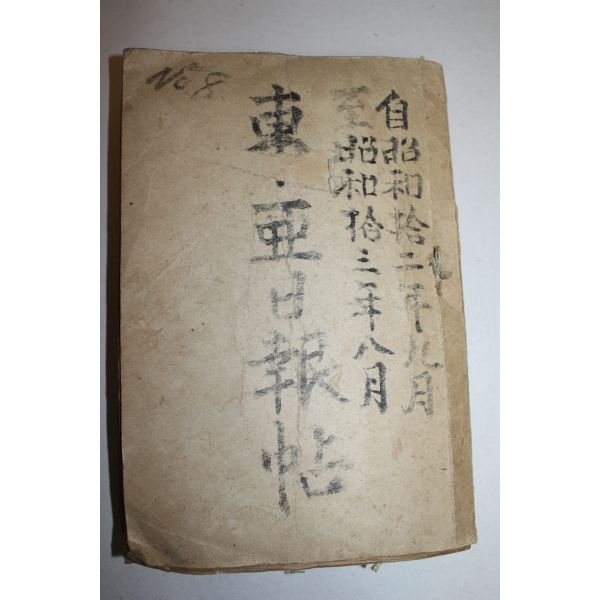 No 8.
自昭和拾二年九月
至昭和拾三年八月
東亜日報帖